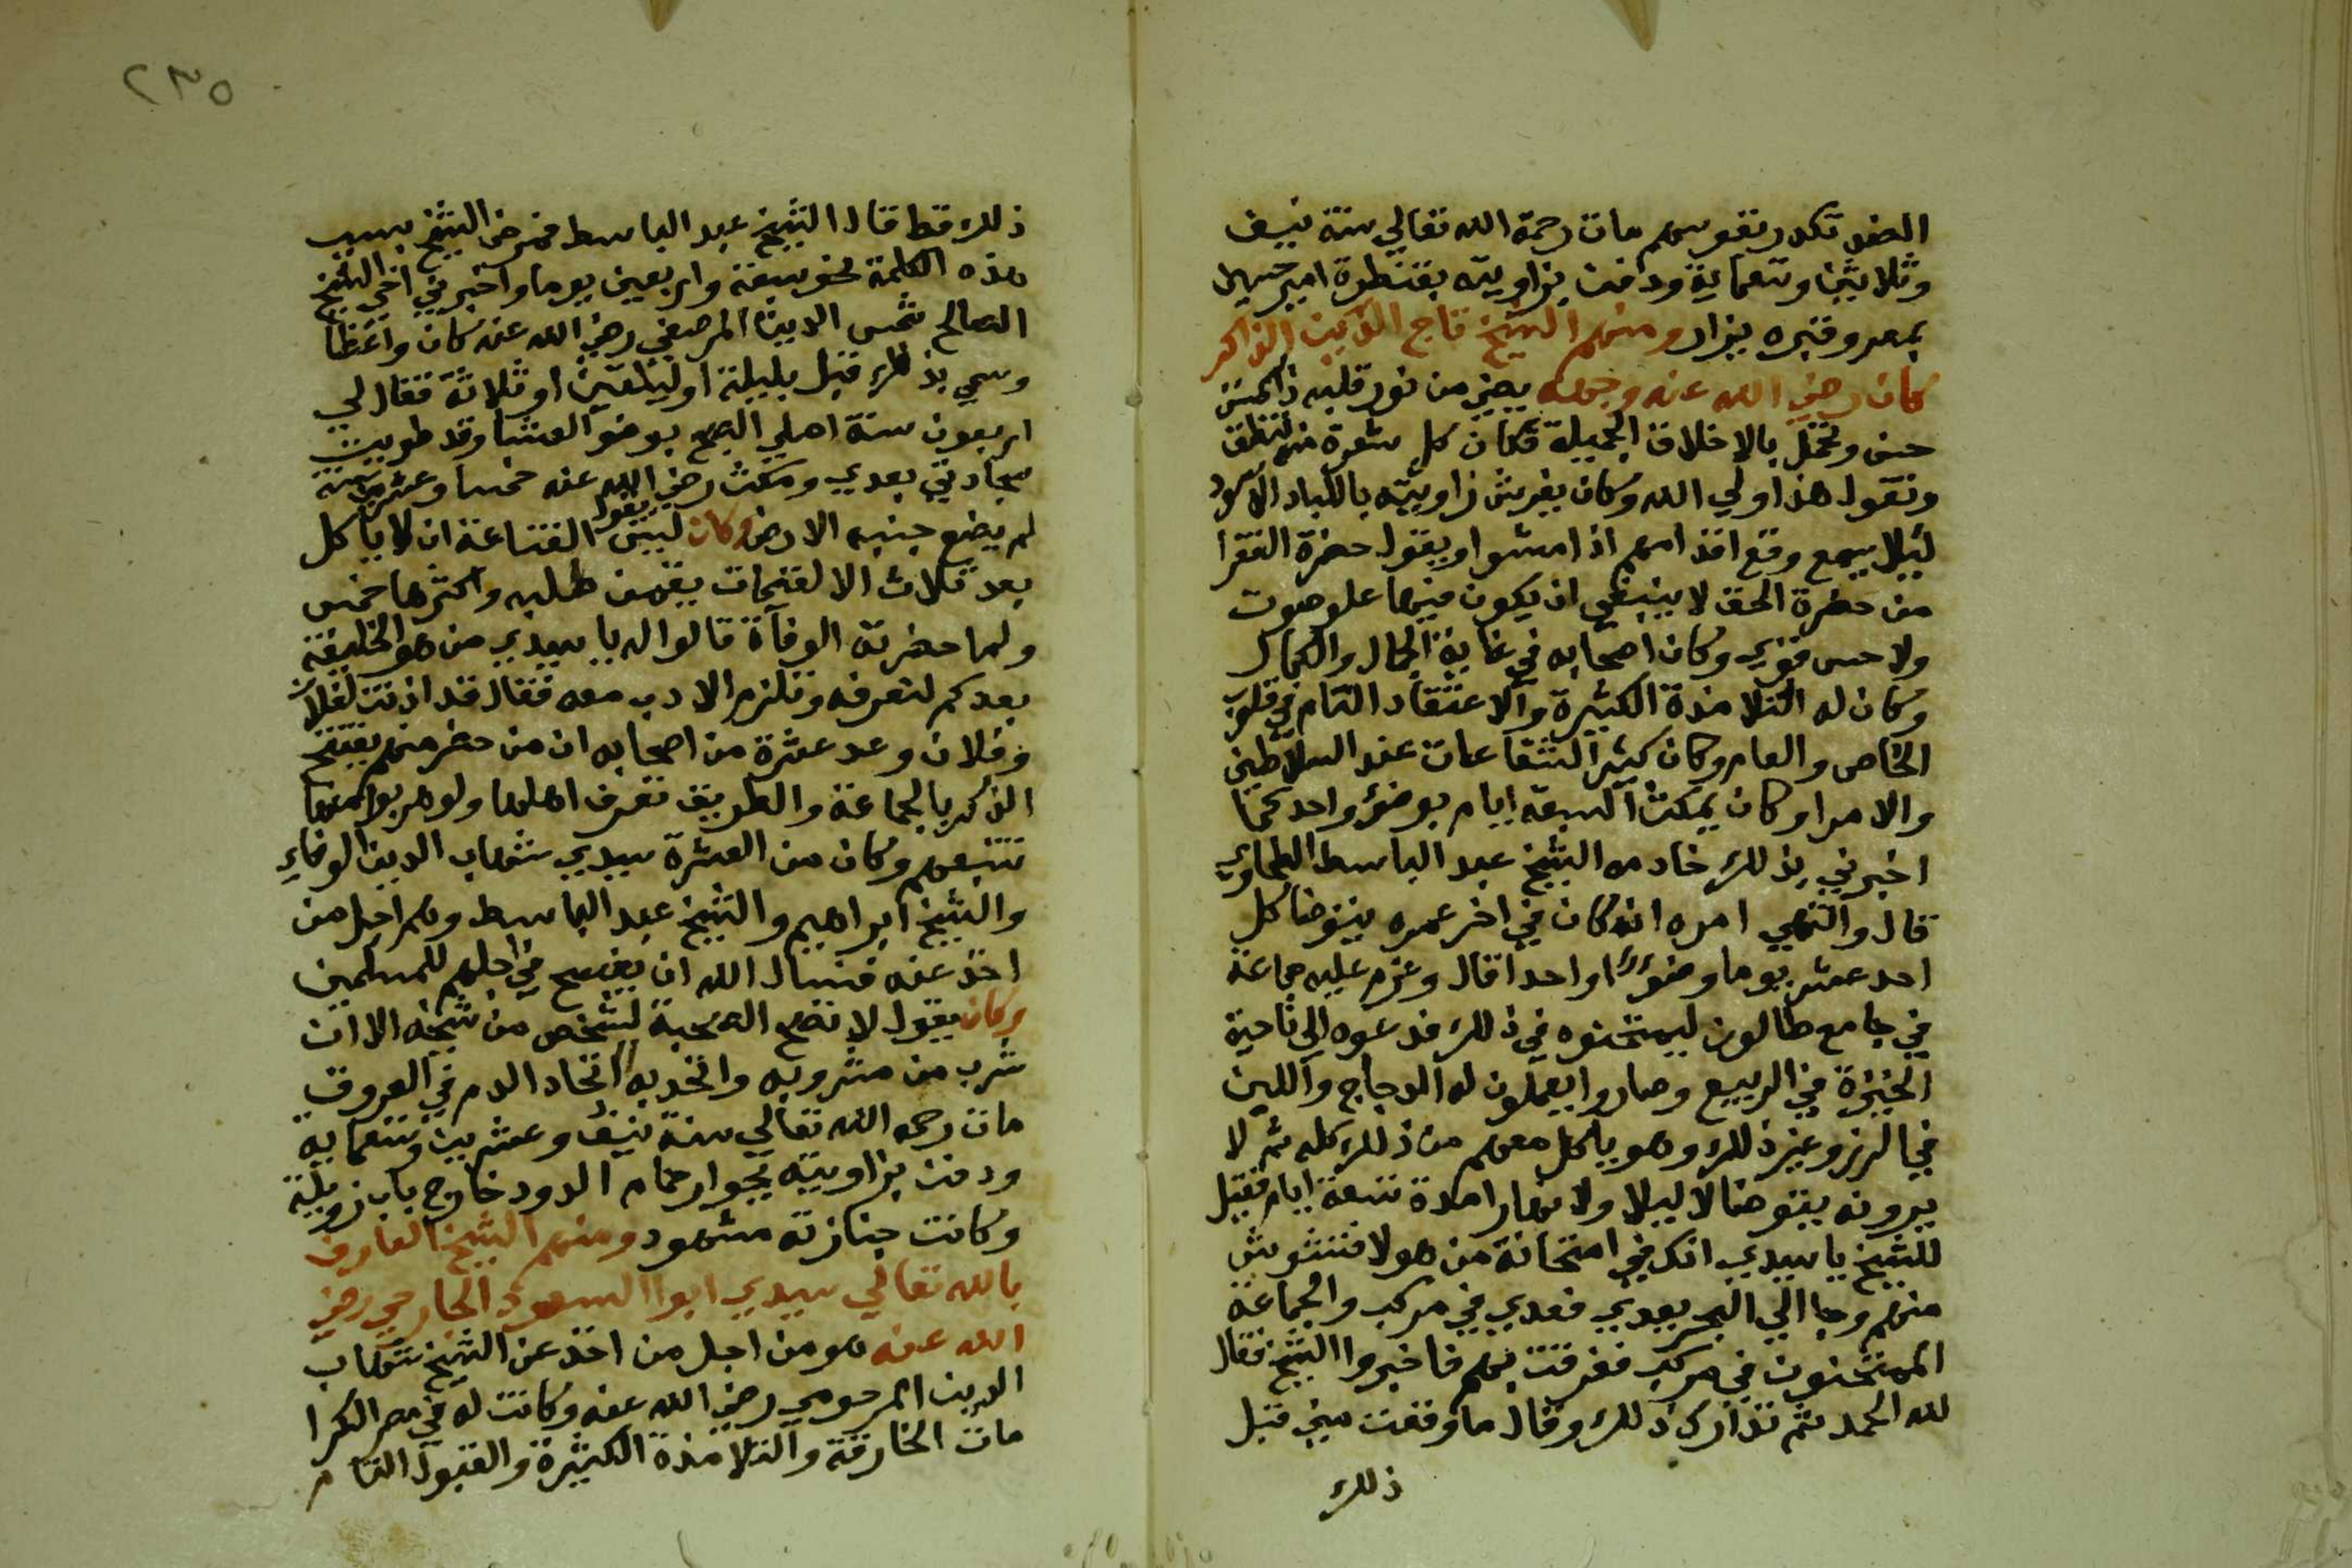 الصف تكدر نفوسهم مات رحمة الله تعالي سنة نيف
وثلاثين وتسعماية ودفن بزاويته بقنطرة امير حسين
بمصر وقبره يزار ومنهم الشيخ تاج الدين الذاكر
كان رضي الله عنه وجهه يضي من نور قلبه ذا سمت
حسن وتجمل بالاخلاق الجميلة تكاد كل شعرة منه تنطق
وتقول هذا ولي الله وكان يفرش زاويته باللباد الاسود
ليلا يسمع وقع اقدامهم اذا مشوا ويقول حضرة الفقرا
من حضرة الحق لا ينبغي ان يكون فيها علو صوت
ولا حس قوي وكان اصحابه في غاية الجمال والكمال
وكان له التلامذة الكثيرة والاعتقاد التام في قلوب
الخاص والعام وكان كثير الشفاعات عند السلاطين
والامرا وكان يمكث السبعة ايام بوضو واحد كما
اخبرني بذلك خادمه الشيخ عبد الباسط الطحاوي
قال وانتهي امره انه كان في اخر عمره يتوضا كل
احد عشر يوما وضوءا واحدا قال وعزم عليه جماعة
في جامع طالون ليمتحنوه في ذلك فدعوه الي ناحية
الجيزة في الربيع وصاروا يعملون له الدجاج واللبن
في الرز وغير ذلك وهو ياكل معهم من ذلك كله ثم لا
يرونه يتوضا لا ليلا ولا نهارا مدة تسعة ايام فقيل
للشيخ يا سيدي انك في امتحانة من هولا فتشوش
منهم وجا الي البحر يعدي فعدي في مركب والجماعة
الممتحنون في مركب فغرقت بهم فاخبروا الشيخ فقال
لله الحمد ثم تدارك ذلك وقال ما وقعت مني قبل
ذلك
٢٣٥
ذلك قط قال الشيخ عبد الباسط فمرض الشيخ بسبب
هذه الكلمة نحو سبعة واربعين يوما واخبرني اخي الشيخ
الصالح شمس الدين المرصفي رضي الله عنه كان واعظا
وسمي بذلك قبل بليلة او ليلتين او ثلاثة فقال لي
اربعون سنة اصلي الصبح بوضو العشا وقد طويت
سجادتي بعدي ومكث رضي الله عنه خمسا وعشرين سنة
لم يضع جنبه الارض وكان يقول ليس القناعة ان لا ياكل
بعد ثلاث الا لقيمات يقمن صلبه واكثرها خمس
ولما حضرته الوفاة قالوا له يا سيدي من هو الخليفة
بعدكم لنعرفه ونلزم الادب معه فقال قد اذنت لفلان
وفلان وعد عشرة من اصحابه ان من حضر منهم يفتتح
الذكر بالجماعة والطريق تعرف اهلها ولو هربوا منها
تتبعهم وكان من العشرة سيدي شهاب الدين الوفاي
والشيخ ابراهيم والشيخ عبد الباسط وهم اجل من
اخذ عنه فنسال الله ان يفسح في اجلهم للمسلمين
وكان يقول لا تصح الصحبة لشخص من شيخه الا ان
شرب من مشروبه واتحد به اتحاد الدم في العروق
مات رحمه الله تعالي سنة نيف وعشرين وتسعماية
ودفن بزاويته بجوار حمام الدود خارج باب زويلة
وكانت جنازته مشهود ومنهم الشيخ العارف
بالله تعالي سيدي ابوا السعود الجارحي رضي
الله عنه هو من اجل من اخذ عن الشيخ شهاب
الدين المرحومي رضي الله عنه وكانت له في مصر الكرا
مات الخارقة والتلامذة الكثيرة والقبول التام